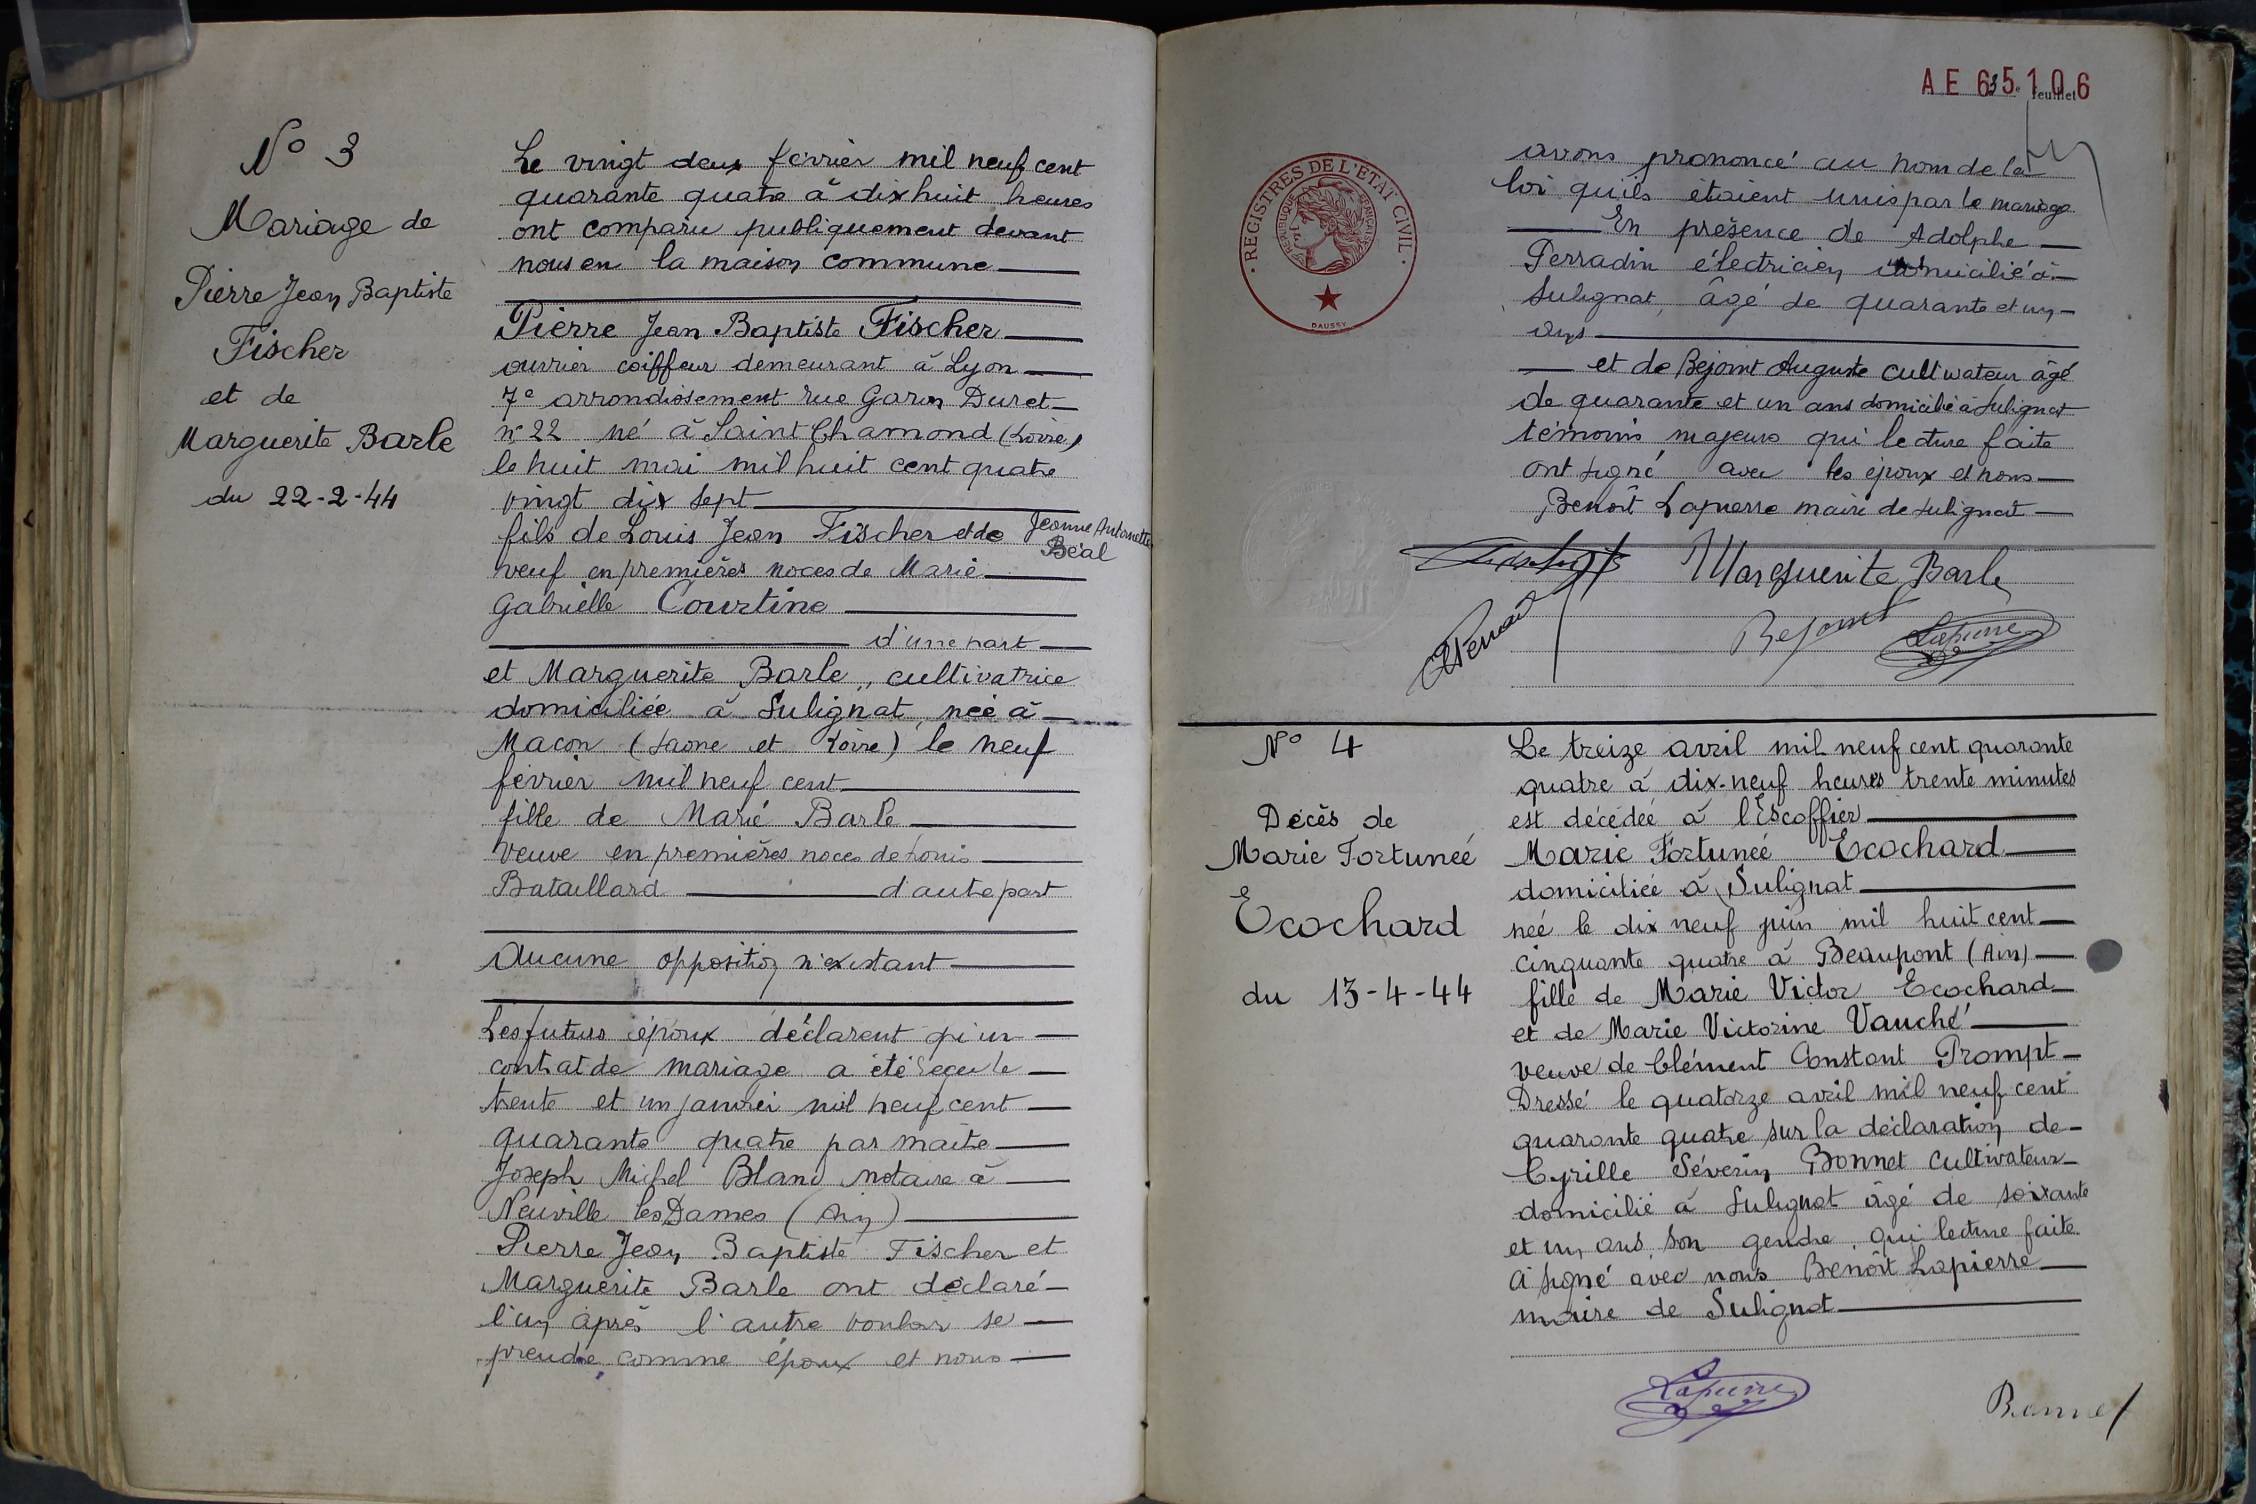 N° 3
Mariage de
Pierre Jean Baptiste
Fischer
et de
Marguerite Barle
du 22-2-44
Le vingt deux février mil neuf cent
quarante quatre à dix huit heures
ont comparu publiquement devant
nous en la maison commune
Pierre Jean Baptiste Fischer
ouvrier coiffeur demeurant à Lyon
7e arrondissement rue Garon Duret
n° 22 né à Saint Chamond (Loire)
le huit mai mil huit cent quatre
vingt dix sept
fils de Louis Jean Fischer et de Jeanne Antoinette
Béal
veuf en premières noces de Marie
Gabrielle Courtine
d'une part
et Marguerite Barle, cultivatrice
domiciliée à Sulignat, née à
Macon (Saone et Loire) le neuf
février mil neuf cent
fille de Marie Barle
veuve en premières noces de Louis
Bataillard d'autre part
Aucune opposition n'existant
Les futurs époux déclarent qu'un
contrat de mariage a été reçu le
trente et un janvier mil neuf cent
quarante quatre par maitre
Joseph Michel Bland notaire à
Neuville les Dames (Ain)
Pierre Jean Baptiste Fischer et
Marguerite Barle ont déclaré
l'un après l'autre vouloir se
prendre comme époux et nous
AE 65106
feuillet
REGISTRES DE L'ETAT CIVIL
REPUBLIQUE FRANÇAISE
DAUSSY
avons prononcé au nom de la
loi qu'ils étaient unis par le mariage
En présence de Adolphe
Perradin électricien domicilié à
Sulignat, âgé de quarante et un
ans
et de Bejoint Auguste cultivateur âgé
de quarante et un ans domicilié à Sulignat
témoins majeurs qui lecture faite
ont signé avec les époux et nous
Benoît Lapierre maire de Sulignat
Marguerite Barle
Bejoint Lapierre
N° 4
Décès de
Marie Fortuneé
Ecochard
du 13-4-44
Le treize avril mil neuf cent quarante
quatre à dix-neuf heures trente minutes
est décédée à l'Escoffier
Marie Fortuneé Ecochard
domiciliée à Sulignat
née le dix neuf juin mil huit cent
cinquante quatre à Beaupont (Ain)
fille de Marie Victor Ecochard
et de Marie Victorine Vauché
veuve de Clément Constant Prompt
Dressé le quatorze avril mil neuf cent
quarante quatre sur la déclaration de
Cyrille Séverin Bonnet cultivateur
domicilié à Sulignat âgé de soixante
et un ans, son gendre, qui lecture faite
a signé avec nous Benoît Lapierre
maire de Sulignat
Lapierre
Bonnet